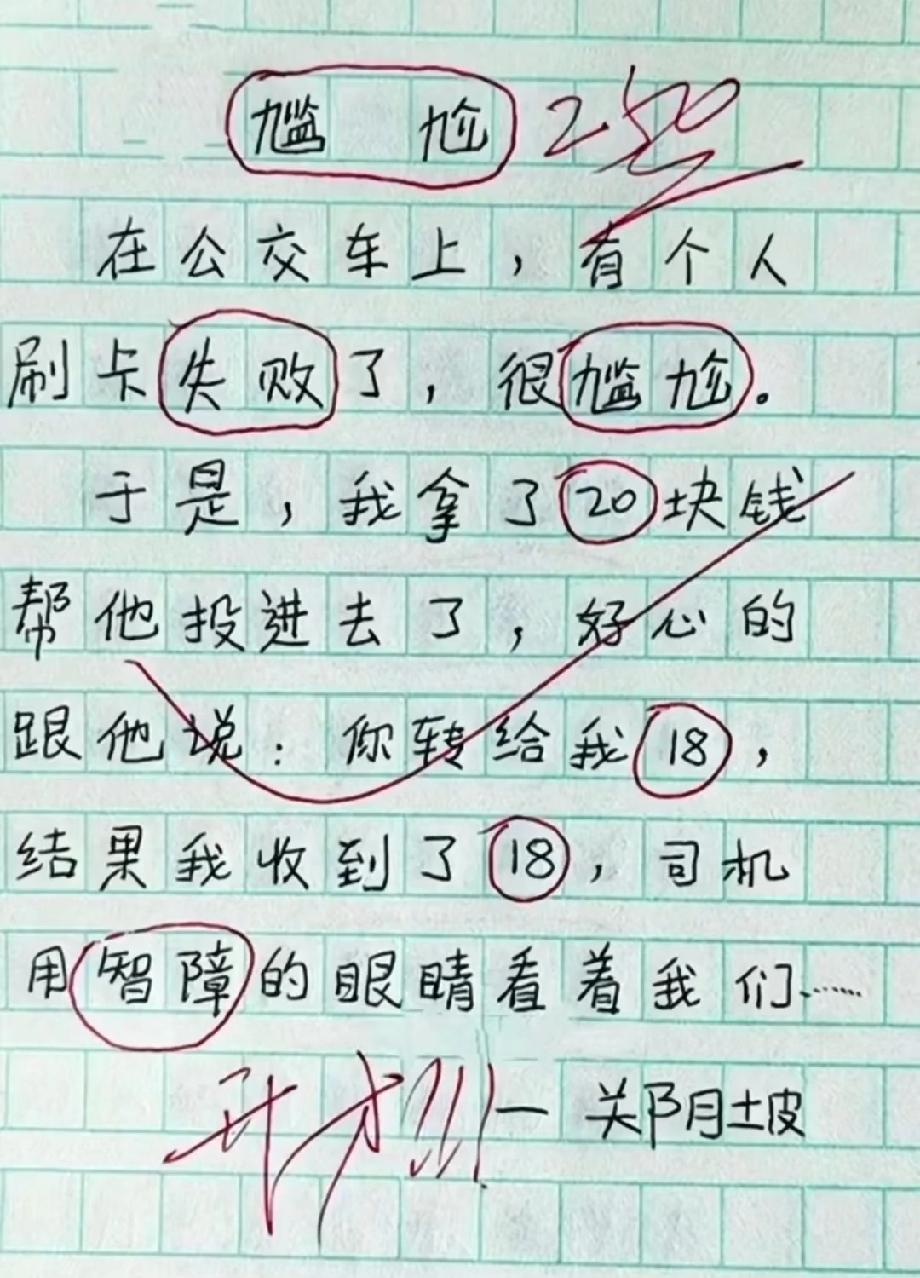 尴尬 250
在公交车上，有个人
刷卡失败了，很尴尬。
于是，我拿了20块钱
帮他投进去了，好心的
跟他说：你转给我18，
结果我收到了18，司机
用智障的眼睛看着我们……
天才!!!
— 郑阴坡